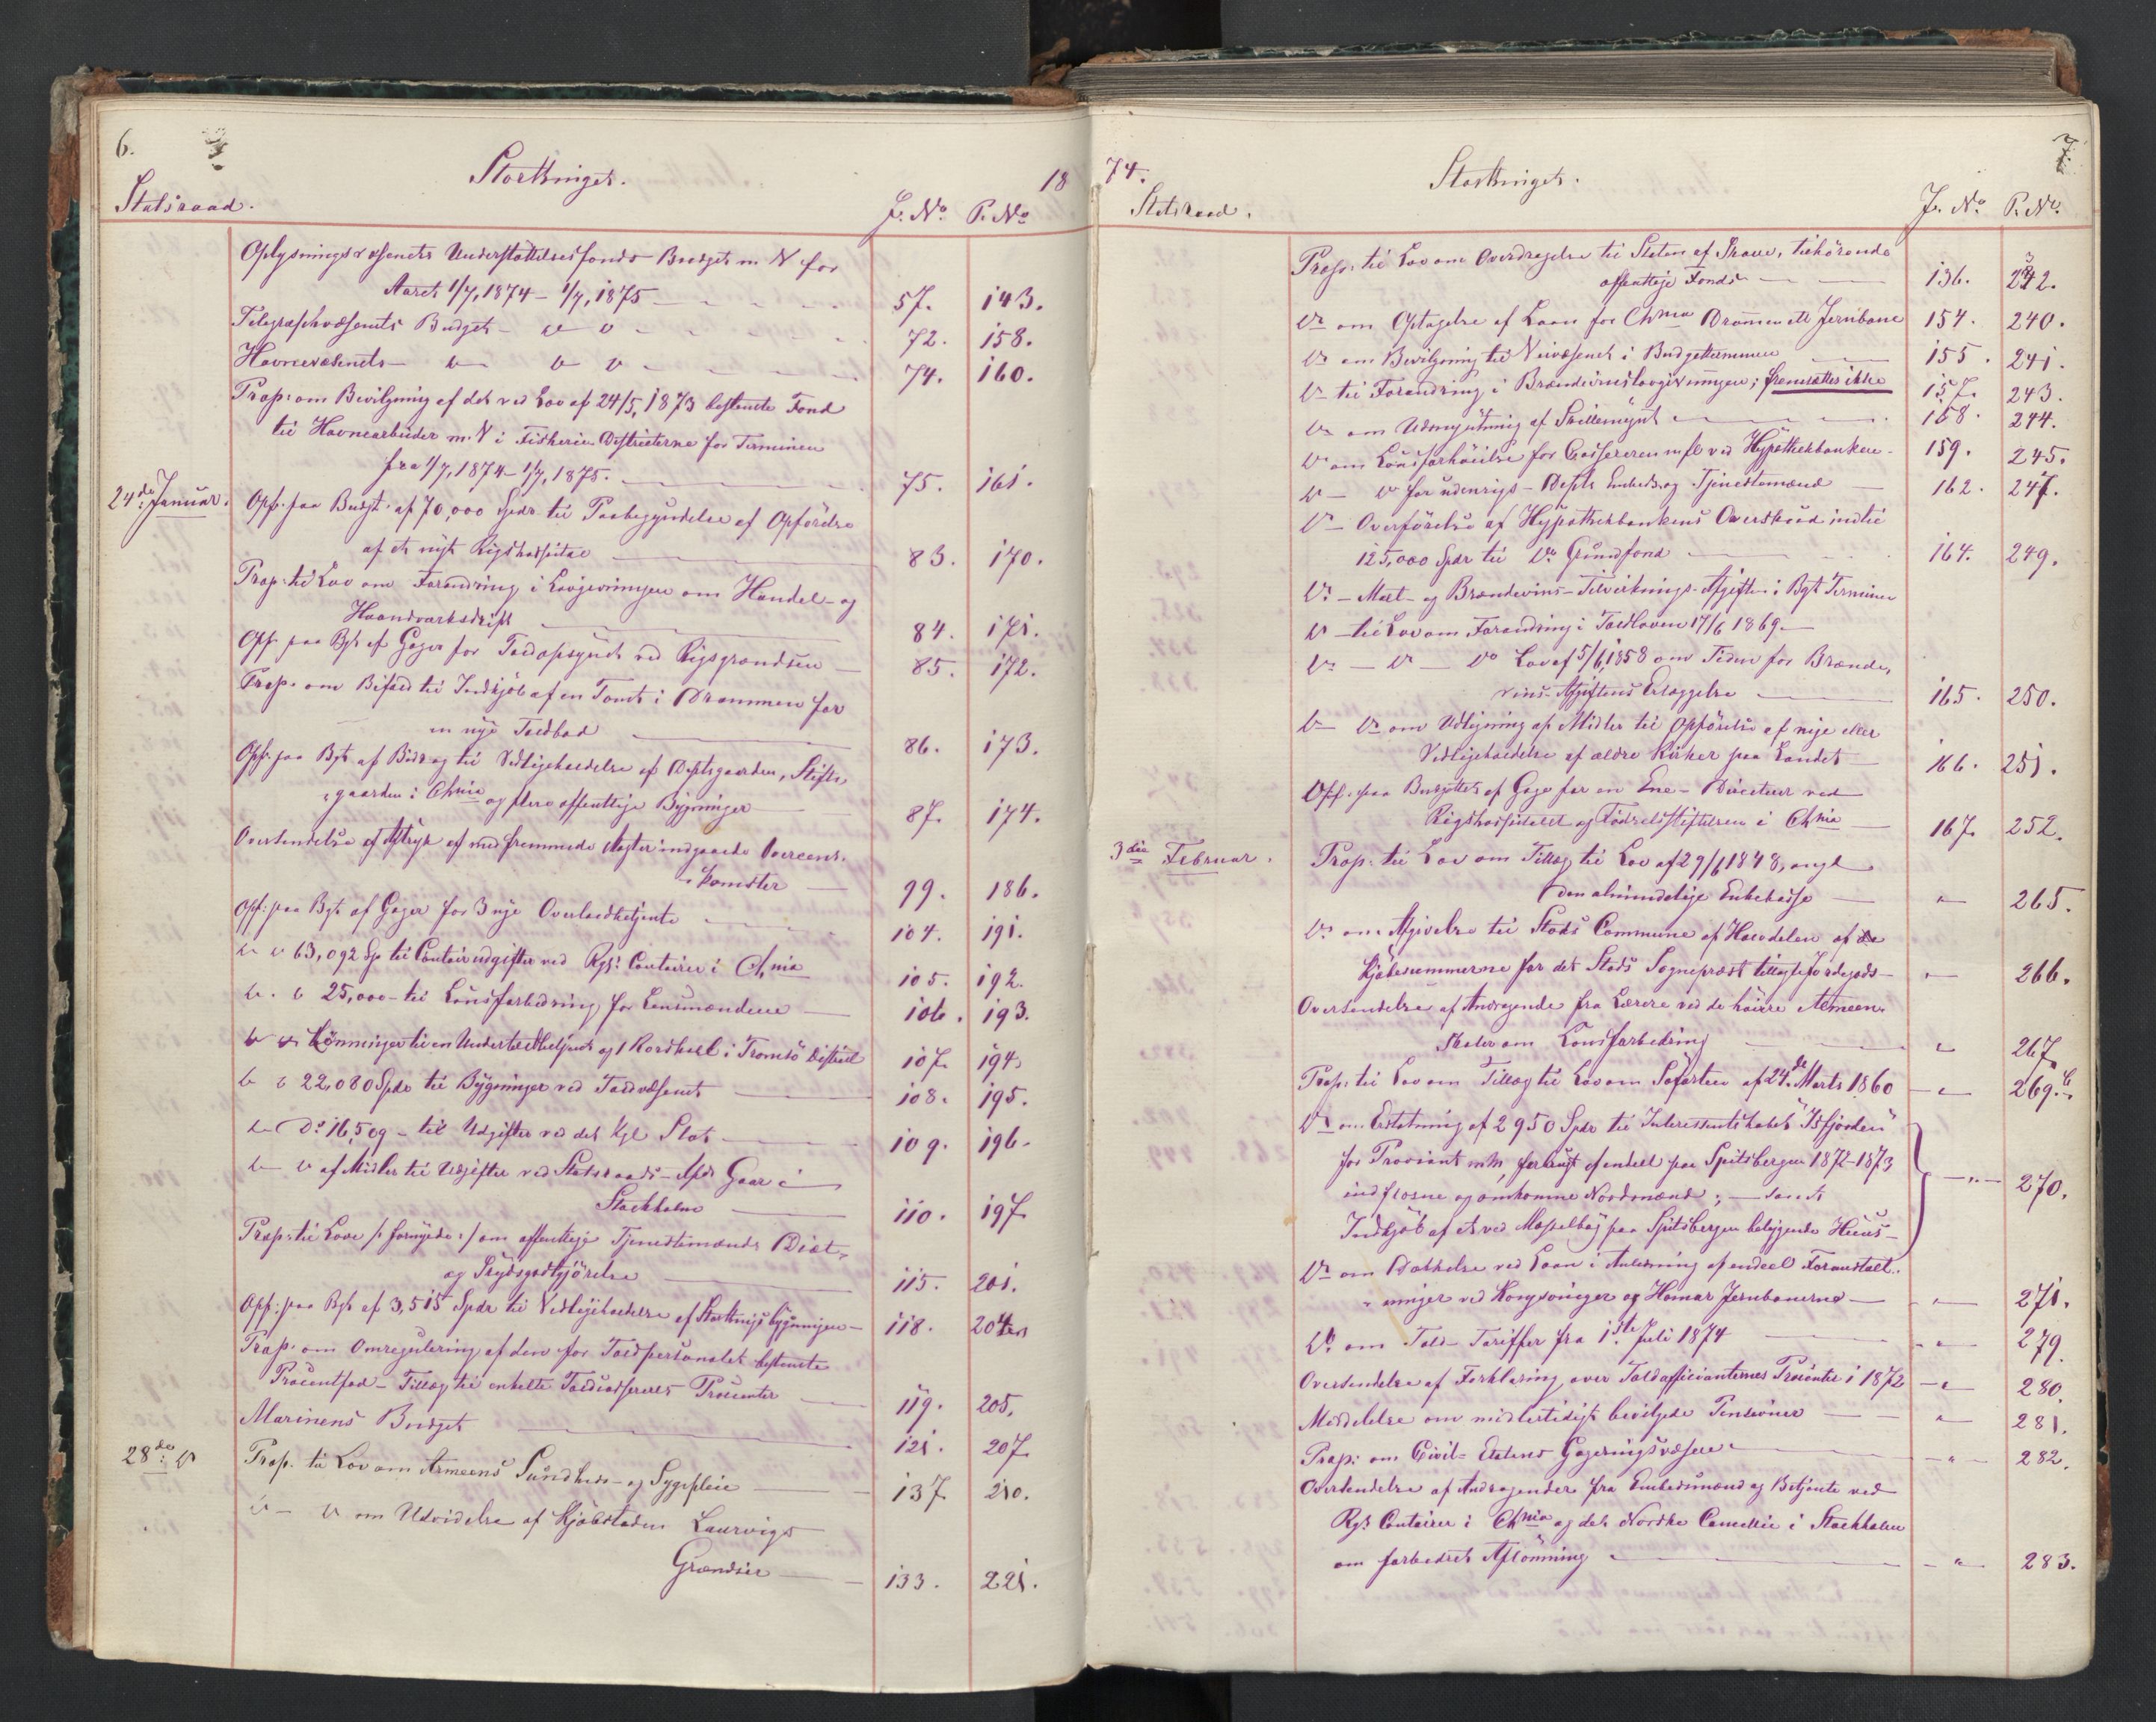 6.
Storthinget.
18
Statsraad.
J. No. P. No.
Oplysningsvæsenets Understøttelsesfonds Budget m. V for
Aaret 1/7, 1874 - 1/7, 1875 57. 143.
Telegraphvæsenets Budget - 72. 158.
Havnevæsenets - 74. 160.
Prop: om Bevilgning af det ved Lov af 24/5, 1873 bestemte Fond
til Havnearbeider m. V i Fiskeri-Districterne for Terminen
fra 1/7, 1874 - 1/7, 1875. 75. 161.
24de Januar. Opf: paa Budgt. af 70,000 Spdr til Paabegyndelse af Opførelse
af et nyt Rigshospital 83. 170.
Prop: til Lov om Forandring i Lovgivningen om Handel- og
Haandværksdrift 84. 171.
Opf: paa Bgt af Gager for Toldopsynet ved Rigsgrændsen 85. 172.
Prop. om Bifald til Indkjøb af en Tomt i Drammen for
en nye Toldbod 86. 173.
Opf: paa Bgt af Bidrag til Vedligeholdelse af Deptsgaarden, Stifts-
gaarden i Chnia og flere offentlige Bygninger 87. 174.
Oversendelse af Aftryk af med fremmede Magter indgaaede Overeens-
komster 99. 186.
Opf: paa Bgt af Gager for 3 nye Overtoldbetjente 104. 191.
63,092 Sp til Contoirudgifter ved Rgs: Contoirer i Chnia 105. 192.
25,000 - til Lønsforbedring for Lensmændene 106. 193.
Lønninger til en Undertoldbetjent og 1 Roerskarl i Tromsø District 107. 194.
22,080 Spdr til Bygninger ved Toldvæsenet 108. 195.
Do 16,509 - til Udgifter ved det Kgl Slot 109. 196.
af Midler til Udgifter ved Statsraads-Afds Gaar i
Stockholm 110. 197.
Prop: til Love /: fornyede :/ om offentlige Tjenestemænds Diæt-
og Skydsgodtgjørelse 115. 201.
Opf: paa Bgt af 3,515 Spdr til Vedligeholdelse af Storthingsbygningen - 118. 204
Prop. om Omregulering af den for Toldpersonalet bestemte
Procentfod - Tillæg til enkelte Toldcassereres Procenter 119. 205.
Marinens Budget 121. 207
28de Prop. til Lov om Armeens Sundheds- og Sygepleie 137 210.
om Udvidelse af Kjøbstaden Laurvigs
Grændser 133. 221.
74.
Storthinget.
7.
Statsraad.
J. No. P. No.
Prop: til Lov om Overdragelse til Staten af Skove, tilhørende
offentlige Fonds 136. 242.
Do om Optagelse af Laan for Chnia Drammen Jernbane 154. 240.
Do om Bevilgning til Veivæsenet i Budgetterminen 155. 241.
Do til Forandring i Brændevinslovgivningen; fremsættes ikke 157. 243.
Do om Udmyntning af Skillemynt 158. 244.
Do om Lønsforhøielse for Cassereren mfl ved Hypothekbanken - 159. 245.
for udenrigs-Depts Embeds- og Tjenestemænd 162. 247.
Do - Overførelse af Hypothekbankens Overskud indtil
125,000 Spdr til Do Grundfond 164. 249.
Do - Malt- og Brændevins-Tilvirknings-Afgiften i Bgt Terminen
Do - til Lov om Forandring i Toldloven 17/6 1869.
Do - Do - Do Lov af 5/6, 1858 om Tiden for Brænde-
vins-Afgiftens Erlæggelse 165. 250.
Do - Do om Udligning af Midler til Opførelse af nye eller
Vedligeholdelse af ældre Kirker paa Landet 166. 251.
Opf: paa Budgettet af Gage for en Ene-Directeur ved
Rigshospitalet og Fødselsstiftelsen i Chnia 167. 252.
3die Februar. Prop: til Lov om Tillæg til Lov af 29/6 1848, angl
den almindelige Enkekasse " 265.
Do om Afgivelse til Stods Commune af Halvdelen af de
Kjøbesummerne for det Stods Sognepræst tillagte Jordegods - " 266.
Oversendelse af Andragende fra Lærere ved de høiere Almeen-
Skoler om Lønsforbedring " 267
Prop: til Lov om Tillæg til Lov om Søfarten af 24de Marts 1860 " 269.
Do om Erstatning af 2950 Spdr til Interessentskabet "Isfjorden"
for Proviant mm, forbrugt af endeel paa Spitsbergen 1872-1873
indfrosne og omkomne Nordmænd; - samt
Indkjøb af et ved Mosselbay paa Spitsbergen beliggende Huus - " 270.
Do om Dækkelse ved Laan i Anledning af endeel Foranstalt-
ninger ved Kongsvinger og Hamar Jernbanerne " 271.
Do om Told-Tariffer fra 1ste Juli 1874 " 279.
Oversendelse af Forklaring over Toldofficianternes Procenter i 1872 " 280
Meddelelse om midlertidigt bevilgede Pensioner " 281.
Prop: om Civil-Etatens Gageringsvæsen " 282.
Oversendelse af Andragender fra Embedsmænd og Betjente ved
Rgs Contoirer i Chnia og det Norske Cancellie i Stockholm
om forbedret Aflønning " 283.